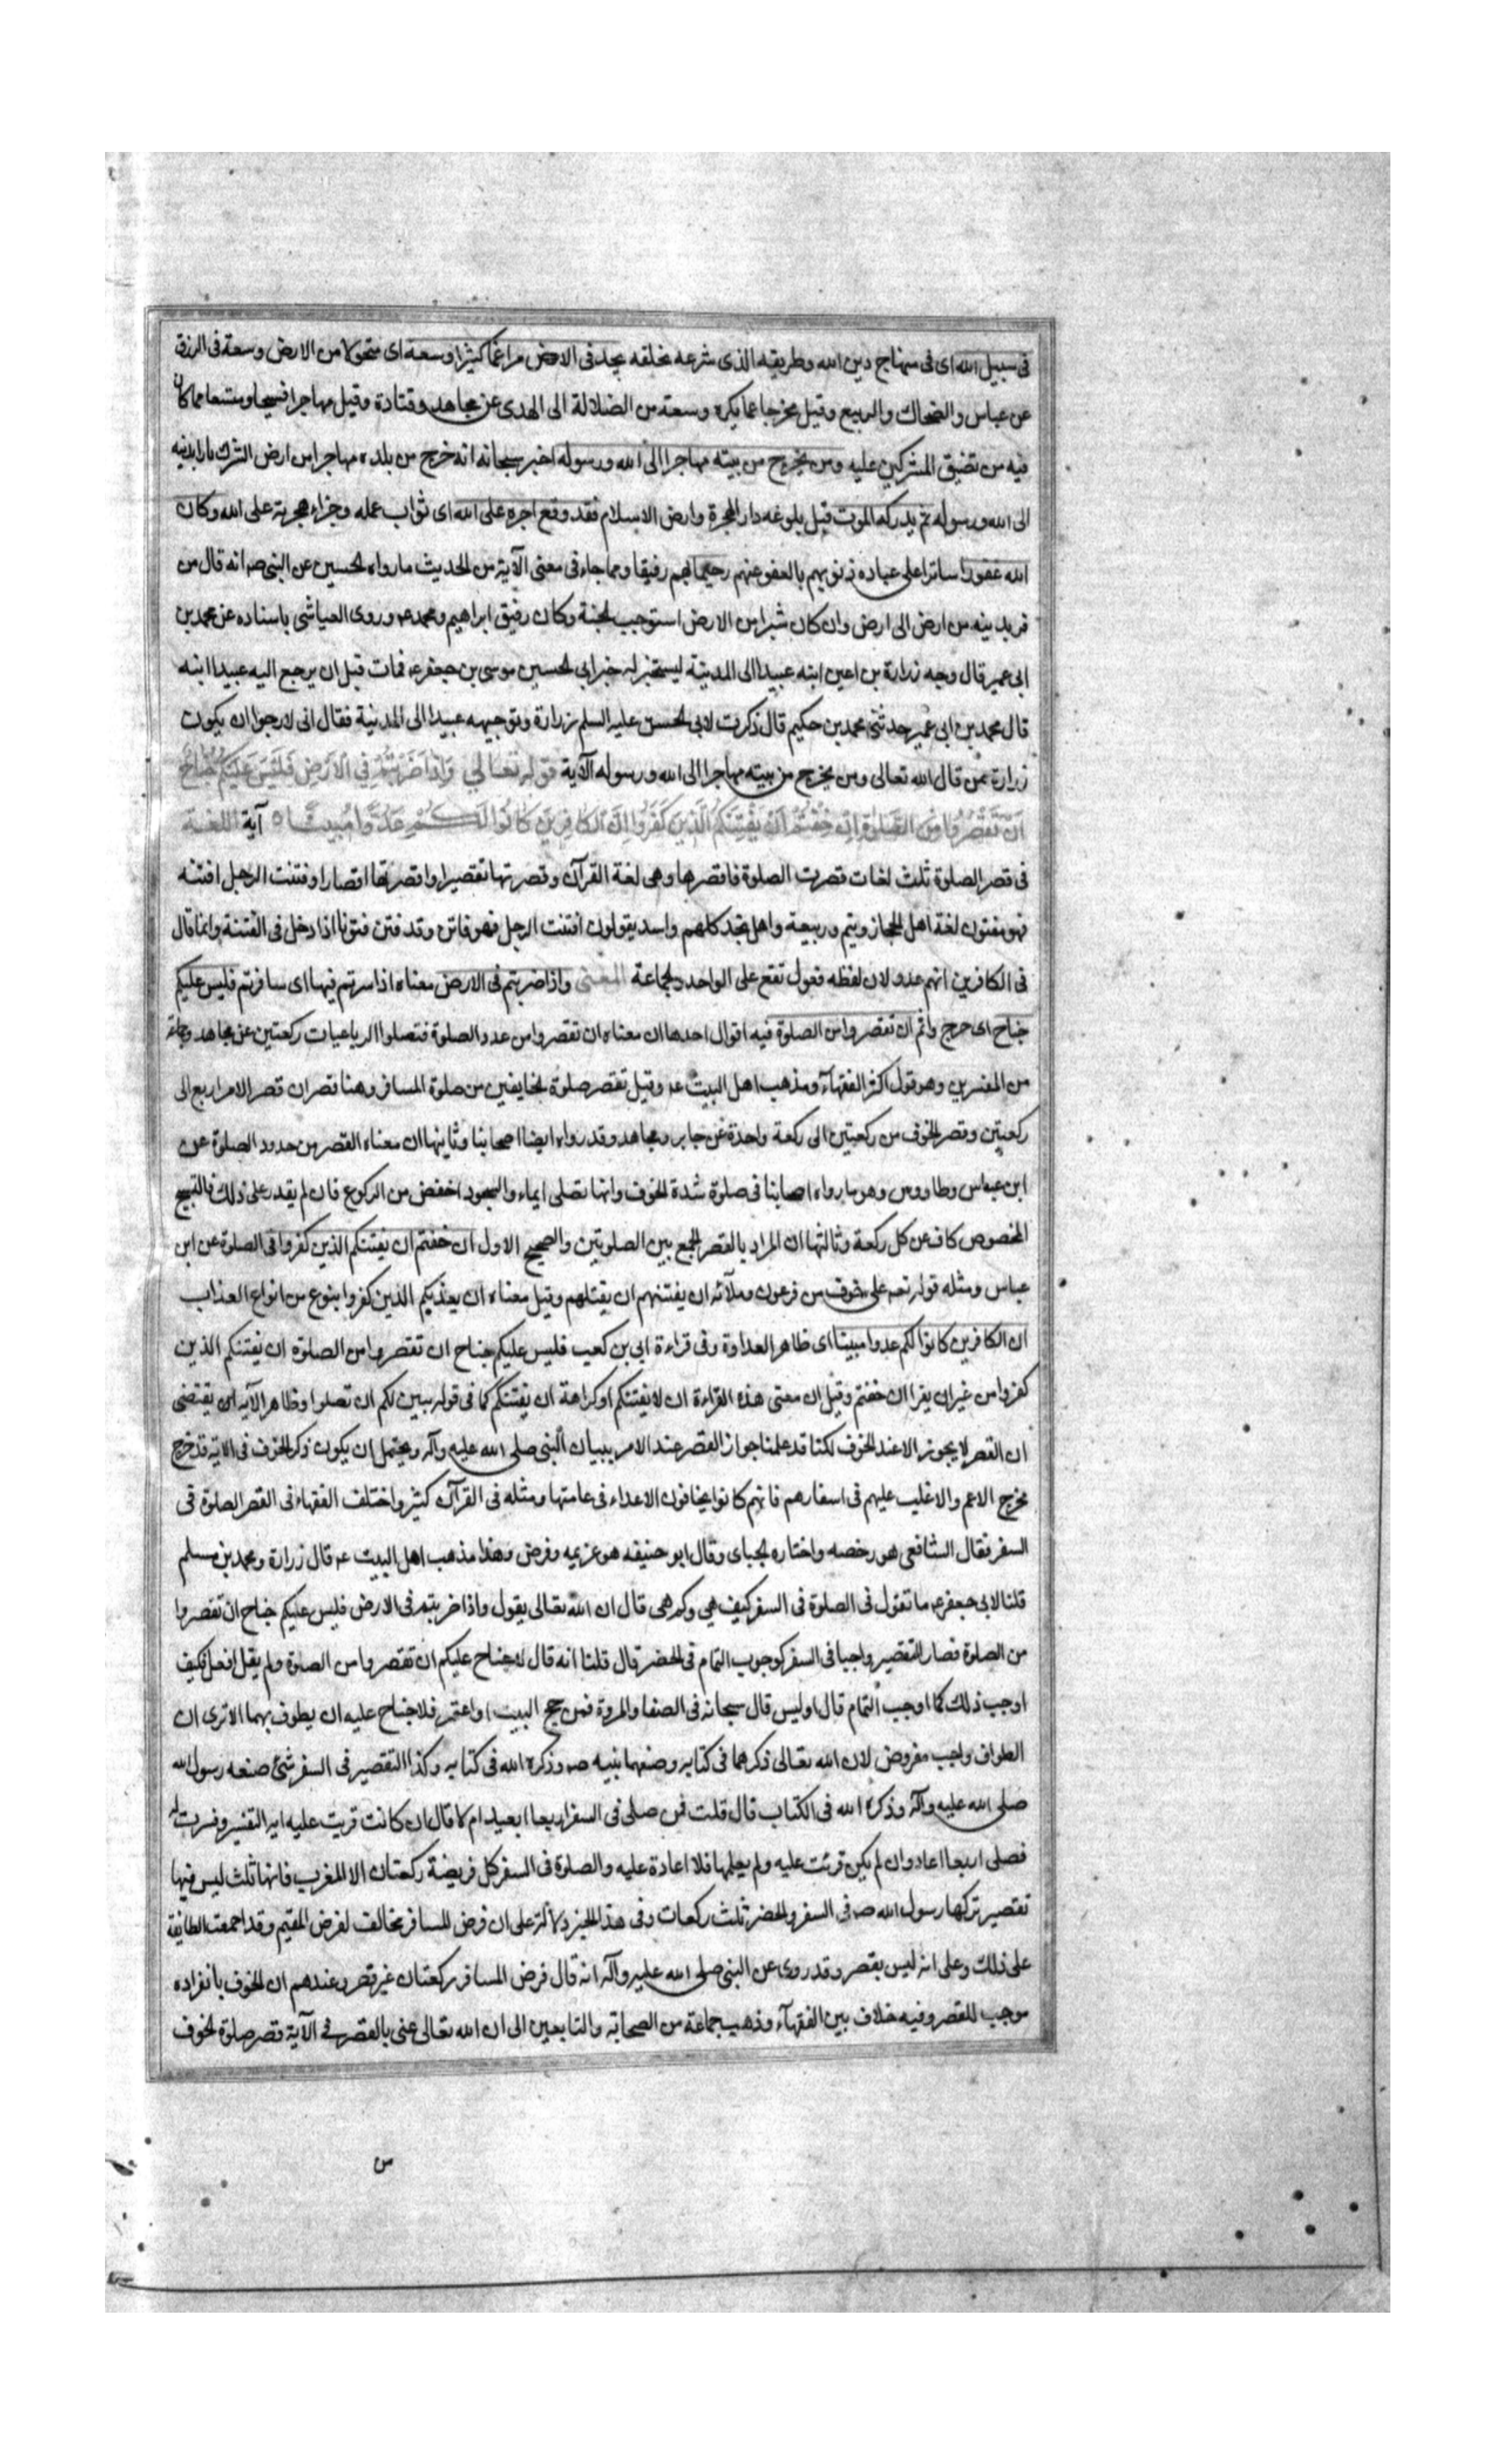 فى سبيل الله اى فى منهاج دين الله وطريقه الذى شرعه لخلقه يجد فى الارض مراغما كثيرا وسعة اى متحولا من الارض وسعة فى الرزق
عن عباس والضحاك والربيع وقيل مخرجا عما يكره وسعة من الضلالة الى الهدى عن مجاهد وقتادة وقيل مهاجرا فسيحا ومتسعا مما كان
فيه من تضيق المشركين عليه ومن يخرج من بيته مهاجرا الى الله ورسوله اخبر سبحانه انه خرج من بلده مهاجرا من ارض الشرك فارا بدينه
الى الله ورسوله ثم يدركه الموت قبل بلوغه دار الهجرة وارض الاسلام فقد وقع اجره على الله اى ثواب عمله وجزاء هجرته على الله وكان
الله غفورا ساترا على عباده ذنوبهم بالعفو عنهم رحيما بهم رفيقا ومما جاء فى معنى الآية من الحديث ما رواه الحسين عن النبى صه انه قال من
فر بدينه من ارض الى ارض وان كان شبرا من الارض استوجب الجنة وكان رفيق ابراهيم ومحمد عه وروى العياشى باسناده عن محمد بن
ابى عمير قال وجه زرارة بن اعين ابنه عبيدا الى المدينة ليستخبر له خبر ابى الحسين موسى بن جعفر عه فمات قبل ان يرجع اليه عبيدا ابنه
قال محمد بن ابى عمير حدثنى محمد بن حكيم قال ذكرت لابى الحسن عليه السلم زرارة وتوجيهه عبيدا الى المدينة فقال انى لارجوا ان يكون
زرارة ممن قال الله تعالى ومن يخرج من بيته مهاجرا الى الله ورسوله الآية قوله تعالى وَاِذَا ضَرَبْتُمْ فِي الْاَرْضِ فَلَيْسَ عَلَيْكُمْ جُنَاحٌ
اَنْ تَقْصُرُوا مِنَ الصَّلٰوةِ اِنْ خِفْتُمْ اَنْ يَفْتِنَكُمُ الَّذِينَ كَفَرُوا اِنَّ الْكَافِرِينَ كَانُوا لَكُمْ عَدُوًّا مُبِينًا ه آية اللغة
فى قصر الصلوة ثلث لغات قصرت الصلوة فاقصرها وهى لغة القرآن وقصرتها تقصيرا واقصرتها اقصارا وفتنت الرجل افتنه
فهو مفتون لغة اهل الحجاز وتيم وربيعة واهل نجد كلهم واسد يقولون افتنت الرجل فهو فاتن وقد فتن فتونا اذا دخل فى الفتنة وانما قال
فى الكافرين انهم عدو لان لفظه فعول تقع على الواحد والجماعة المعنى واذا ضربتم فى الارض معناه اذا سرتم فيها اى سافرتم فليس عليكم
جناح اى حرج واثم ان تقصروا من الصلوة فيه اقوال احدها ان معناه ان تقصروا من عدد الصلوة فتصلوا الرباعيات ركعتين عن مجاهد وجماعة
من المفسرين وهو قول اكثر الفقهآء ومذهب اهل البيت عه وقيل تقصر صلوة الخايفين من صلوة المسافر وهنا قصران قصر الامن اربع الى
ركعتين وقصر الخوف من ركعتين الى ركعة واحدة عن جابر ومجاهد وقد رواه ايضا اصحابنا وثانيها ان معناه القصر من حدود الصلوة عن
ابن عباس وطاووس وهو ما رواه اصحابنا فى صلوة شدة الخوف وانها تصلى ايماء والسجود اخفض من الركوع فان لم يقدر على ذلك فالتسبيح
المخصوص كاف عن كل ركعة وثالثها ان المراد بالقصر الجمع بين الصلوتين والصحيح الاول ان خفتم ان يفتنكم الذين كفروا فى الصلوة عن ابن
عباس ومثله قوله تعه على خوف من فرعون وملآئه ان يفتنهم ان يقتلهم وقيل معناه ان يعذبكم الذين كفروا بنوع من انواع العذاب
ان الكافرين كانوا لكم عدوا مبينا اى ظاهر العداوة وفى قراءة ابى بن كعب فليس عليكم جناح ان تقصروا من الصلوة ان يفتنكم الذين
كفروا من غير ان يقرا ان خفتم وقيل ان معنى هذه القراءة ان لا يفتنكم او كراهة ان يفتنكم كما فى قوله يبين لكم ان تضلوا وظاهر الآية يقتضى
ان القصر لا يجوز الا عند الخوف لكنا قد علمنا جواز القصر عند الامن ببيان النبى صلى الله عليه وآله ويحتمل ان يكون ذكر الخوف فى الاية قد خرج
مخرج الاعم والاغلب عليهم فى اسفارهم فانهم كانوا يخافون الاعداء فى عامتها ومثله فى القرآن كثير واختلف الفقهاء فى القصر الصلوة فى
السفر فقال الشافعى هو رخصه واختاره الجباى وقال ابو حنيفه هو عزيمه وفرض وهذا مذهب اهل البيت عه قال زرارة ومحمد بن مسلم
قلنا لابى جعفر عه ما تقول فى الصلوة فى السفر كيف هى وكم هى قال ان الله تعالى يقول واذا ضربتم فى الارض فليس عليكم جناح ان تقصروا
من الصلوة فصار التقصير واجبا فى السفر كوجوب التمام فى الحضر قال قلنا انه قال لا جناح عليكم ان تقصروا من الصلوة ولم يقل افعل فكيف
اوجب ذلك كما اوجب التمام قال اوليس قال سبحانه فى الصفا والمروة فمن حج البيت او اعتمر فلا جناح عليه ان يطوف بهما الا ترى ان
الطواف واجب مفروض لان الله تعالى ذكرهما فى كتابه وصنعهما نبيه صه وذكره الله فى كتابه وكذا التقصير فى السفر شئ صنعه رسول الله
صلى الله عليه وآله وذكره الله فى الكتاب قال قلت فمن صلى فى السفر اربعا ايعيد ام لا قال ان كانت قريت عليه اية التقصير وفسرت له
فصلى اربعا اعاد وان لم يكن قرئت عليه ولم يعلمها فلا اعادة عليه والصلوة فى السفر كل فريضة ركعتان الا المغرب فانها ثلث ليس فيها
تقصير تركها رسول الله صه فى السفر والحضر ثلث ركعات وفى هذا الخبر دلالة على ان فرض المسافر مخالف لفرض المقيم وقد اجمعت الطائفة
على ذلك وعلى انه ليس بقصر وقد روى عن النبى صلى الله عليه وآله انه قال فرض المسافر ركعتان غير قصر وعندهم ان الخوف بانفراده
موجب للقصر وفيه خلاف بين الفقهآء وذهب جماعة من الصحابة والتابعين الى ان الله تعالى عنى بالقصر فى الآية قصر صلوة الخوف